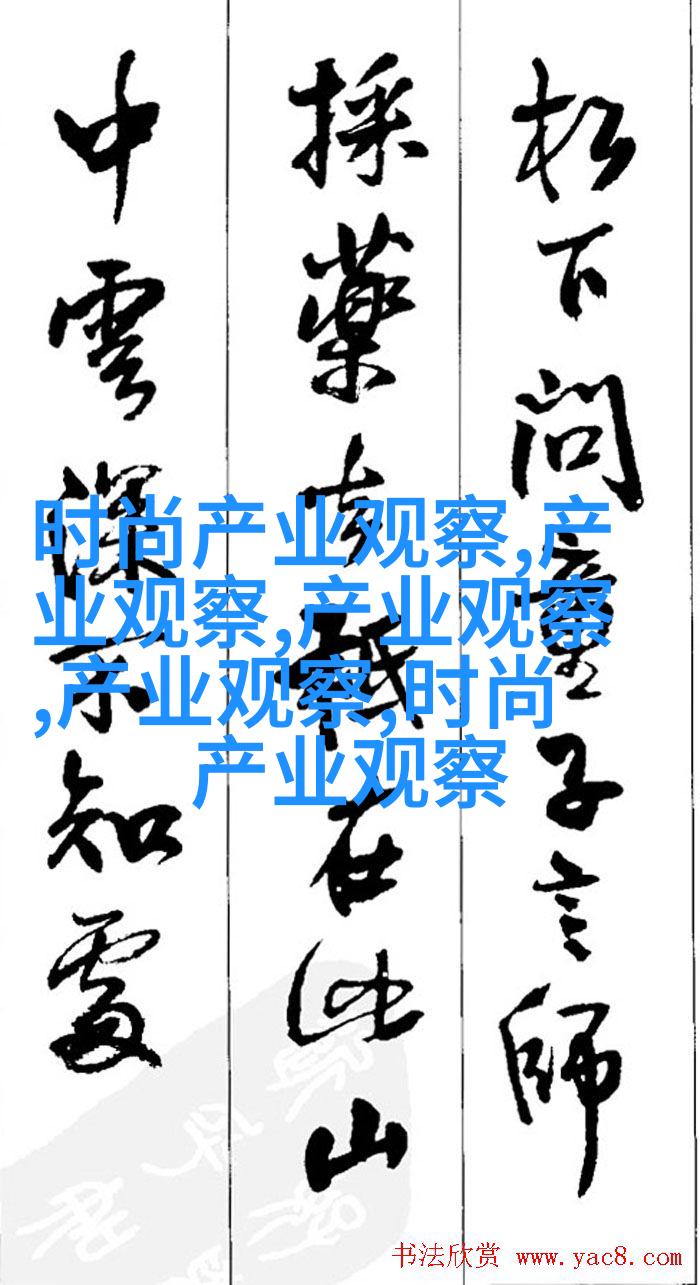 松下問童子言師
採藥去在此山
中雲深不知處
时尚产业观察,产
业观察,产业观察
,产业观察,时尚
产业观察
书法欣赏 www.yac8.com